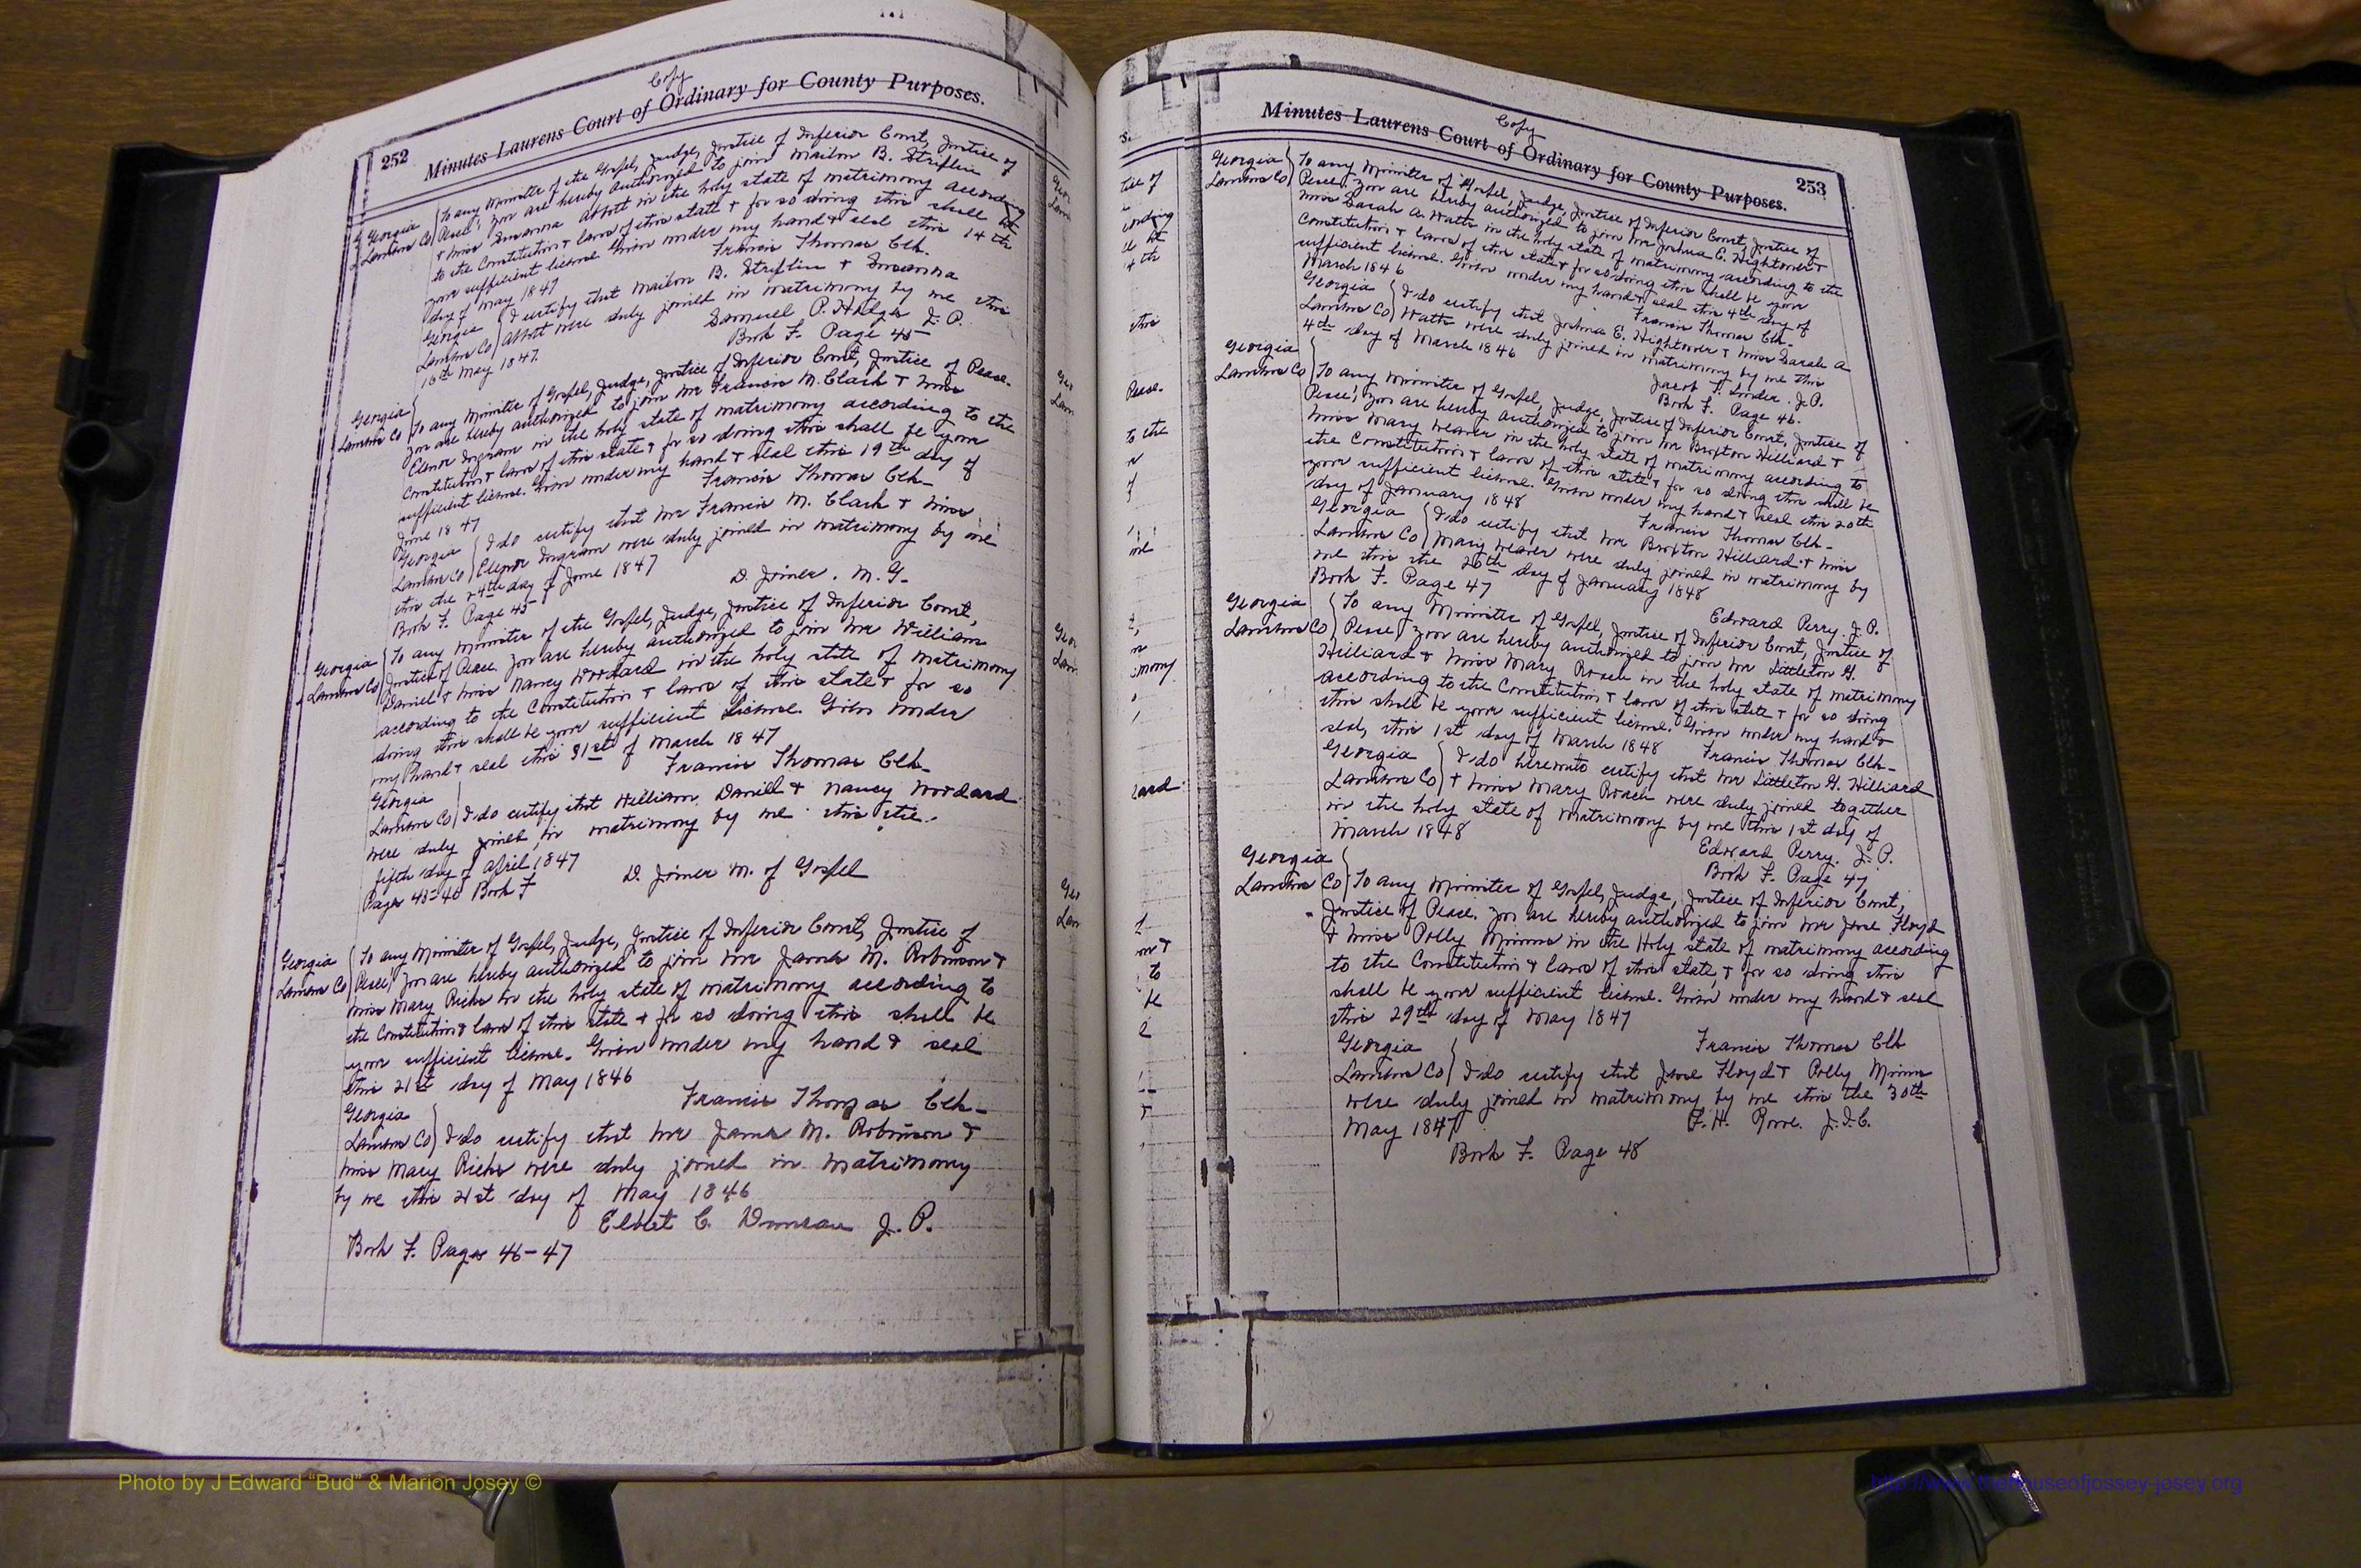 Copy
252 Minutes Laurens Court of Ordinary for County Purposes.
Georgia
Laurens Co
To any Minister of the Gospel, Judge, Justice of Inferior Court, Justice of
Peace; you are hereby authorized to join Mailon B. Striflin
& Miss Susanna Abbott in the holy state of matrimony according
to the Constitution & laws of this state & for so doing this shall be
your sufficient license Given under my hand & seal this 14th
day of May 1847 Francis Thomas Clk.
Georgia
Laurens Co
I certify that Mailon B. Striflin & Susanna
Abbott were duly joined in matrimony by me this
16th May 1847. Samuel P. Hodges J.P.
Book F. Page 45
Georgia
Laurens Co
To any Minister of Gospel, Judge, Justice of Inferior Court, Justice of Peace.
You are hereby authorized to join Mr Francis M. Clark & Miss
Elenor Ingram in the holy state of matrimony according to the
Constitution & laws of this state & for so doing this shall be your
sufficient license. Given under my hand & seal this 19th day of
June 1847 Francis Thomas Clk-
Georgia
Laurens Co
I do certify that Mr Francis M. Clark & Miss
Elenor Ingram were duly joined in matrimony by me
this the 24th day of June 1847 D. Joiner. M.G.
Book F. Page 45
Georgia
Laurens Co
To any Minister of the Gospel, Judge, Justice of Inferior Court,
Justice of Peace You are hereby authorized to join Mr William
Daniel & Miss Nancy Woodard in the holy state of matrimony
according to the Constitution & laws of this state & for so
doing this shall be your sufficient license. Given under
my hand & seal this 31st of March 1847
Francis Thomas Clk-
Georgia
Laurens Co
I do certify that William Daniell & Nancy Woodard
were duly joined in matrimony by me this the
fifth day of April, 1847
D. Joiner M. of Gospel
Pages 45-46 Book F
Georgia
Laurens Co
To any Minister of Gospel, Judge, Justice of Inferior Court, Justice of
Peace, You are hereby authorized to join Mr James M. Robinson &
Miss Mary Ricks in the holy state of matrimony according to
the Constitution & laws of this state & for so doing this shall be
your sufficient license. Given under my hand & seal
this 21st day of May 1846
Francis Thomas Clk-
Georgia
Laurens Co
I do certify that Mr James M. Robinson &
Miss Mary Ricks were duly joined in matrimony
by me this 21st day of May 1846
Elbert C. Duncan J.P.
Book F. Pages 46-47
Copy
Minutes Laurens Court of Ordinary for County Purposes. 253
Georgia
Laurens Co
To any Minister of Gospel, Judge, Justice of Inferior Court, Justice of
Peace. You are hereby authorized to join Mr Joshua E. Hightower &
Miss Sarah A. Watts in the holy state of matrimony according to the
Constitution & laws of this state & for so doing this shall be your
sufficient license. Given under my hand & seal this 4th day of
March 1846 Francis Thomas Clk-
Georgia
Laurens Co
I do certify that Joshua E. Hightower & Miss Sarah A
Watts were duly joined in matrimony by me this
4th day of March 1846
Jacob T. Linder. J.P.
Book F. Page 46.
Georgia
Laurens Co
To any Minister of Gospel, Judge, Justice of Inferior Court, Justice of
Peace; You are hereby authorized to join Mr Brixton Hilliard &
Miss Mary Weaver in the holy state of matrimony according to
the Constitution & laws of this state & for so doing this shall be
your sufficient license. Given under my hand & seal this 20th
day of January 1848 Francis Thomas Clk-
Georgia
Laurens Co
I do certify that Mr Brixton Hilliard & Miss
Mary Weaver were duly joined in matrimony by
me this the 26th day of January 1848
Book F. Page 47 Edward Perry. J.P.
Georgia
Laurens Co
To any Minister of Gospel, Justice of Inferior Court, Justice of
Peace, You are hereby authorized to join Mr Littleton G.
Hilliard & Miss Mary Roach in the holy state of matrimony
according to the Constitution & laws of this state & for so doing
this shall be your sufficient license. Given under my hand &
seal, this 1st day of March 1848 Francis Thomas Clk-
Georgia
Laurens Co
I do hereunto certify that Mr Littleton G. Hilliard
& Miss Mary Roach were duly joined together
in the holy state of matrimony by me this 1st day of
March 1848
Edward Perry. J.P.
Book F. Page 47
Georgia
Laurens Co
To any Minister of Gospel, Judge, Justice of Inferior Court,
Justice of Peace. You are hereby authorized to join Mr Jose Floyd
& Miss Polly Mimms in the Holy state of matrimony according
to the Constitution & laws of this state, & for so doing this
shall be your sufficient license. Given under my hand & seal
this 29th day of May 1847
Francis Thomas Clk
Georgia
Laurens Co
I do certify that Jose Floyd & Polly Mimms
were duly joined in matrimony by me this the 30th
May 1847 F. H. Rowe. J.I.C.
Book F. Page 48
Photo by J Edward “Bud” & Marion Josey ©
http://www.thehouseofjossey-josey.org